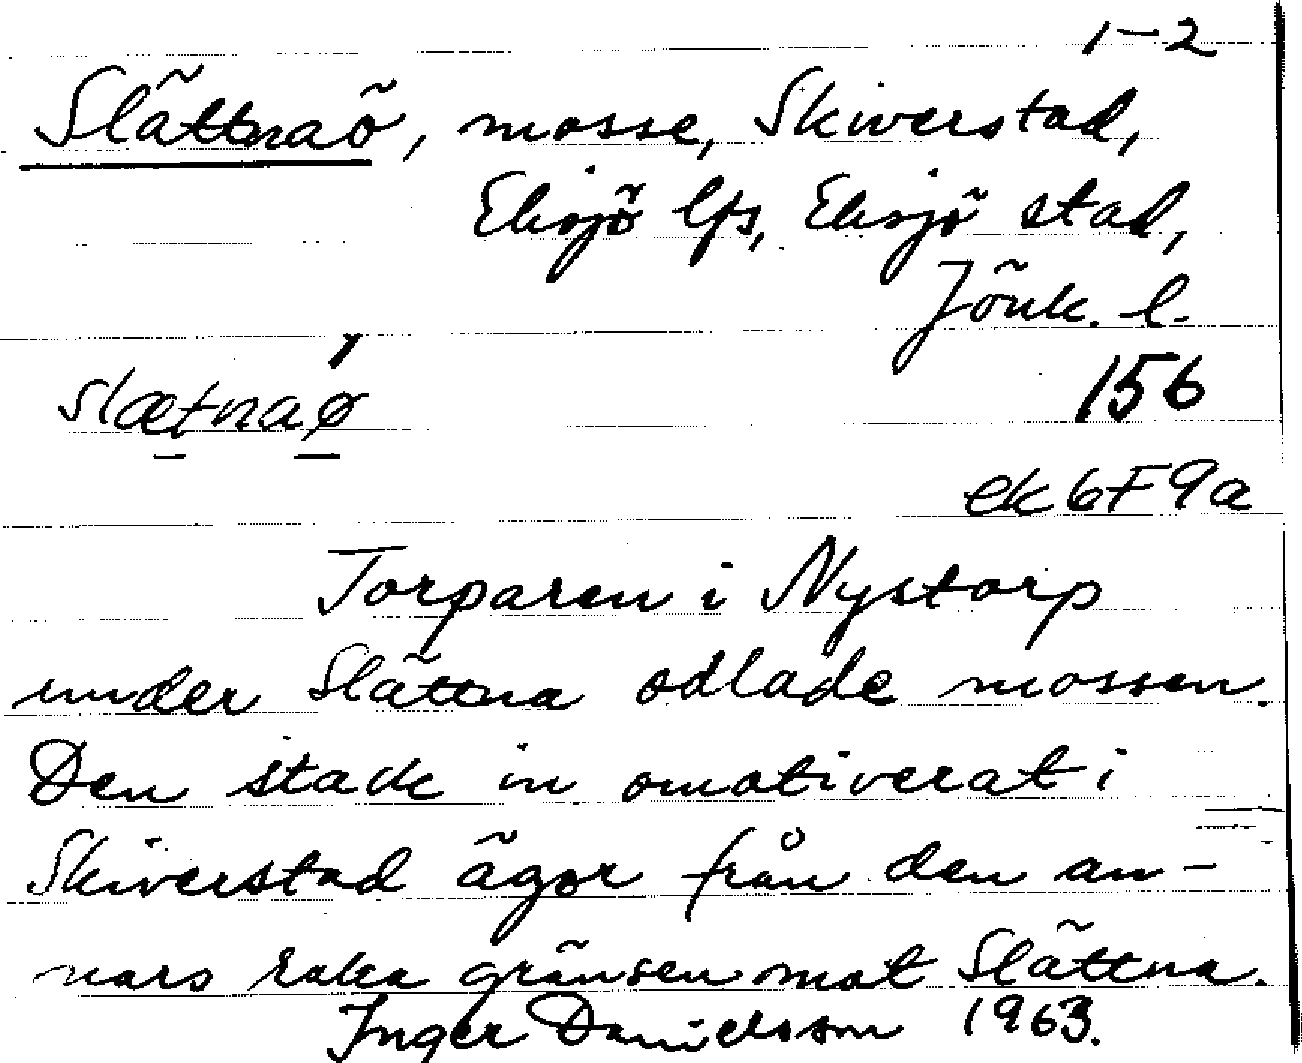 1-2
Slättnaö, mosse, Skiverstad,
Eksjö lfs, Eksjö stad,
Jönk. l.
slætnaø
156
ek 6F9a
Torparen i Nystorp
under Slättna odlade mossen.
Den stack in omotiverat i
Skiverstad ägor från den an-
nars raka gränsen mot Slättna.
Inger Danielsson 1963.